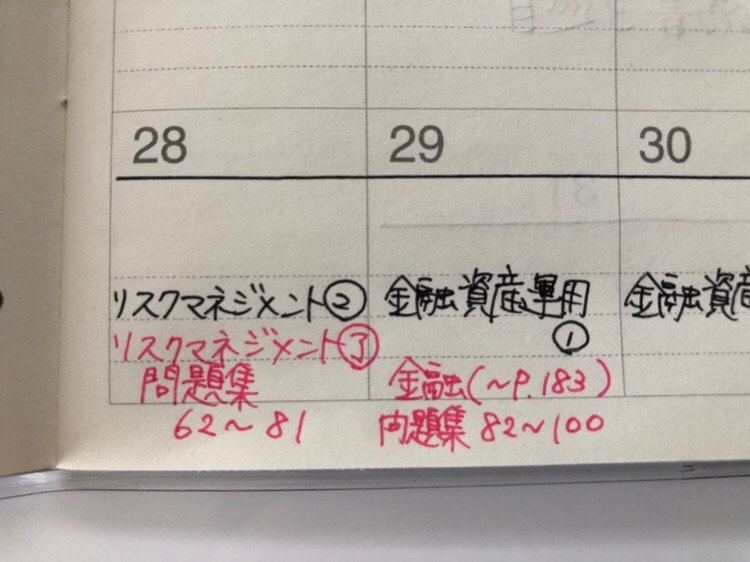 28
リスクマネジメント②
リスクマネジメント③
問題集
62～81
29
金融資産運用
①
金融(～P.183)
問題集 82～100
30
金融資産